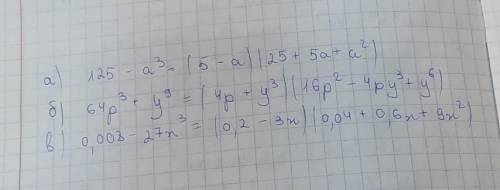 а) 125 - a³ = (5 - a)(25 + 5a + a²)
б) 64p³ + y⁹ = (4p + y³)(16p² - 4py³ + y⁶)
в) 0,008 - 27x³ = (0,2 - 3x)(0,04 + 0,6x + 9x²)